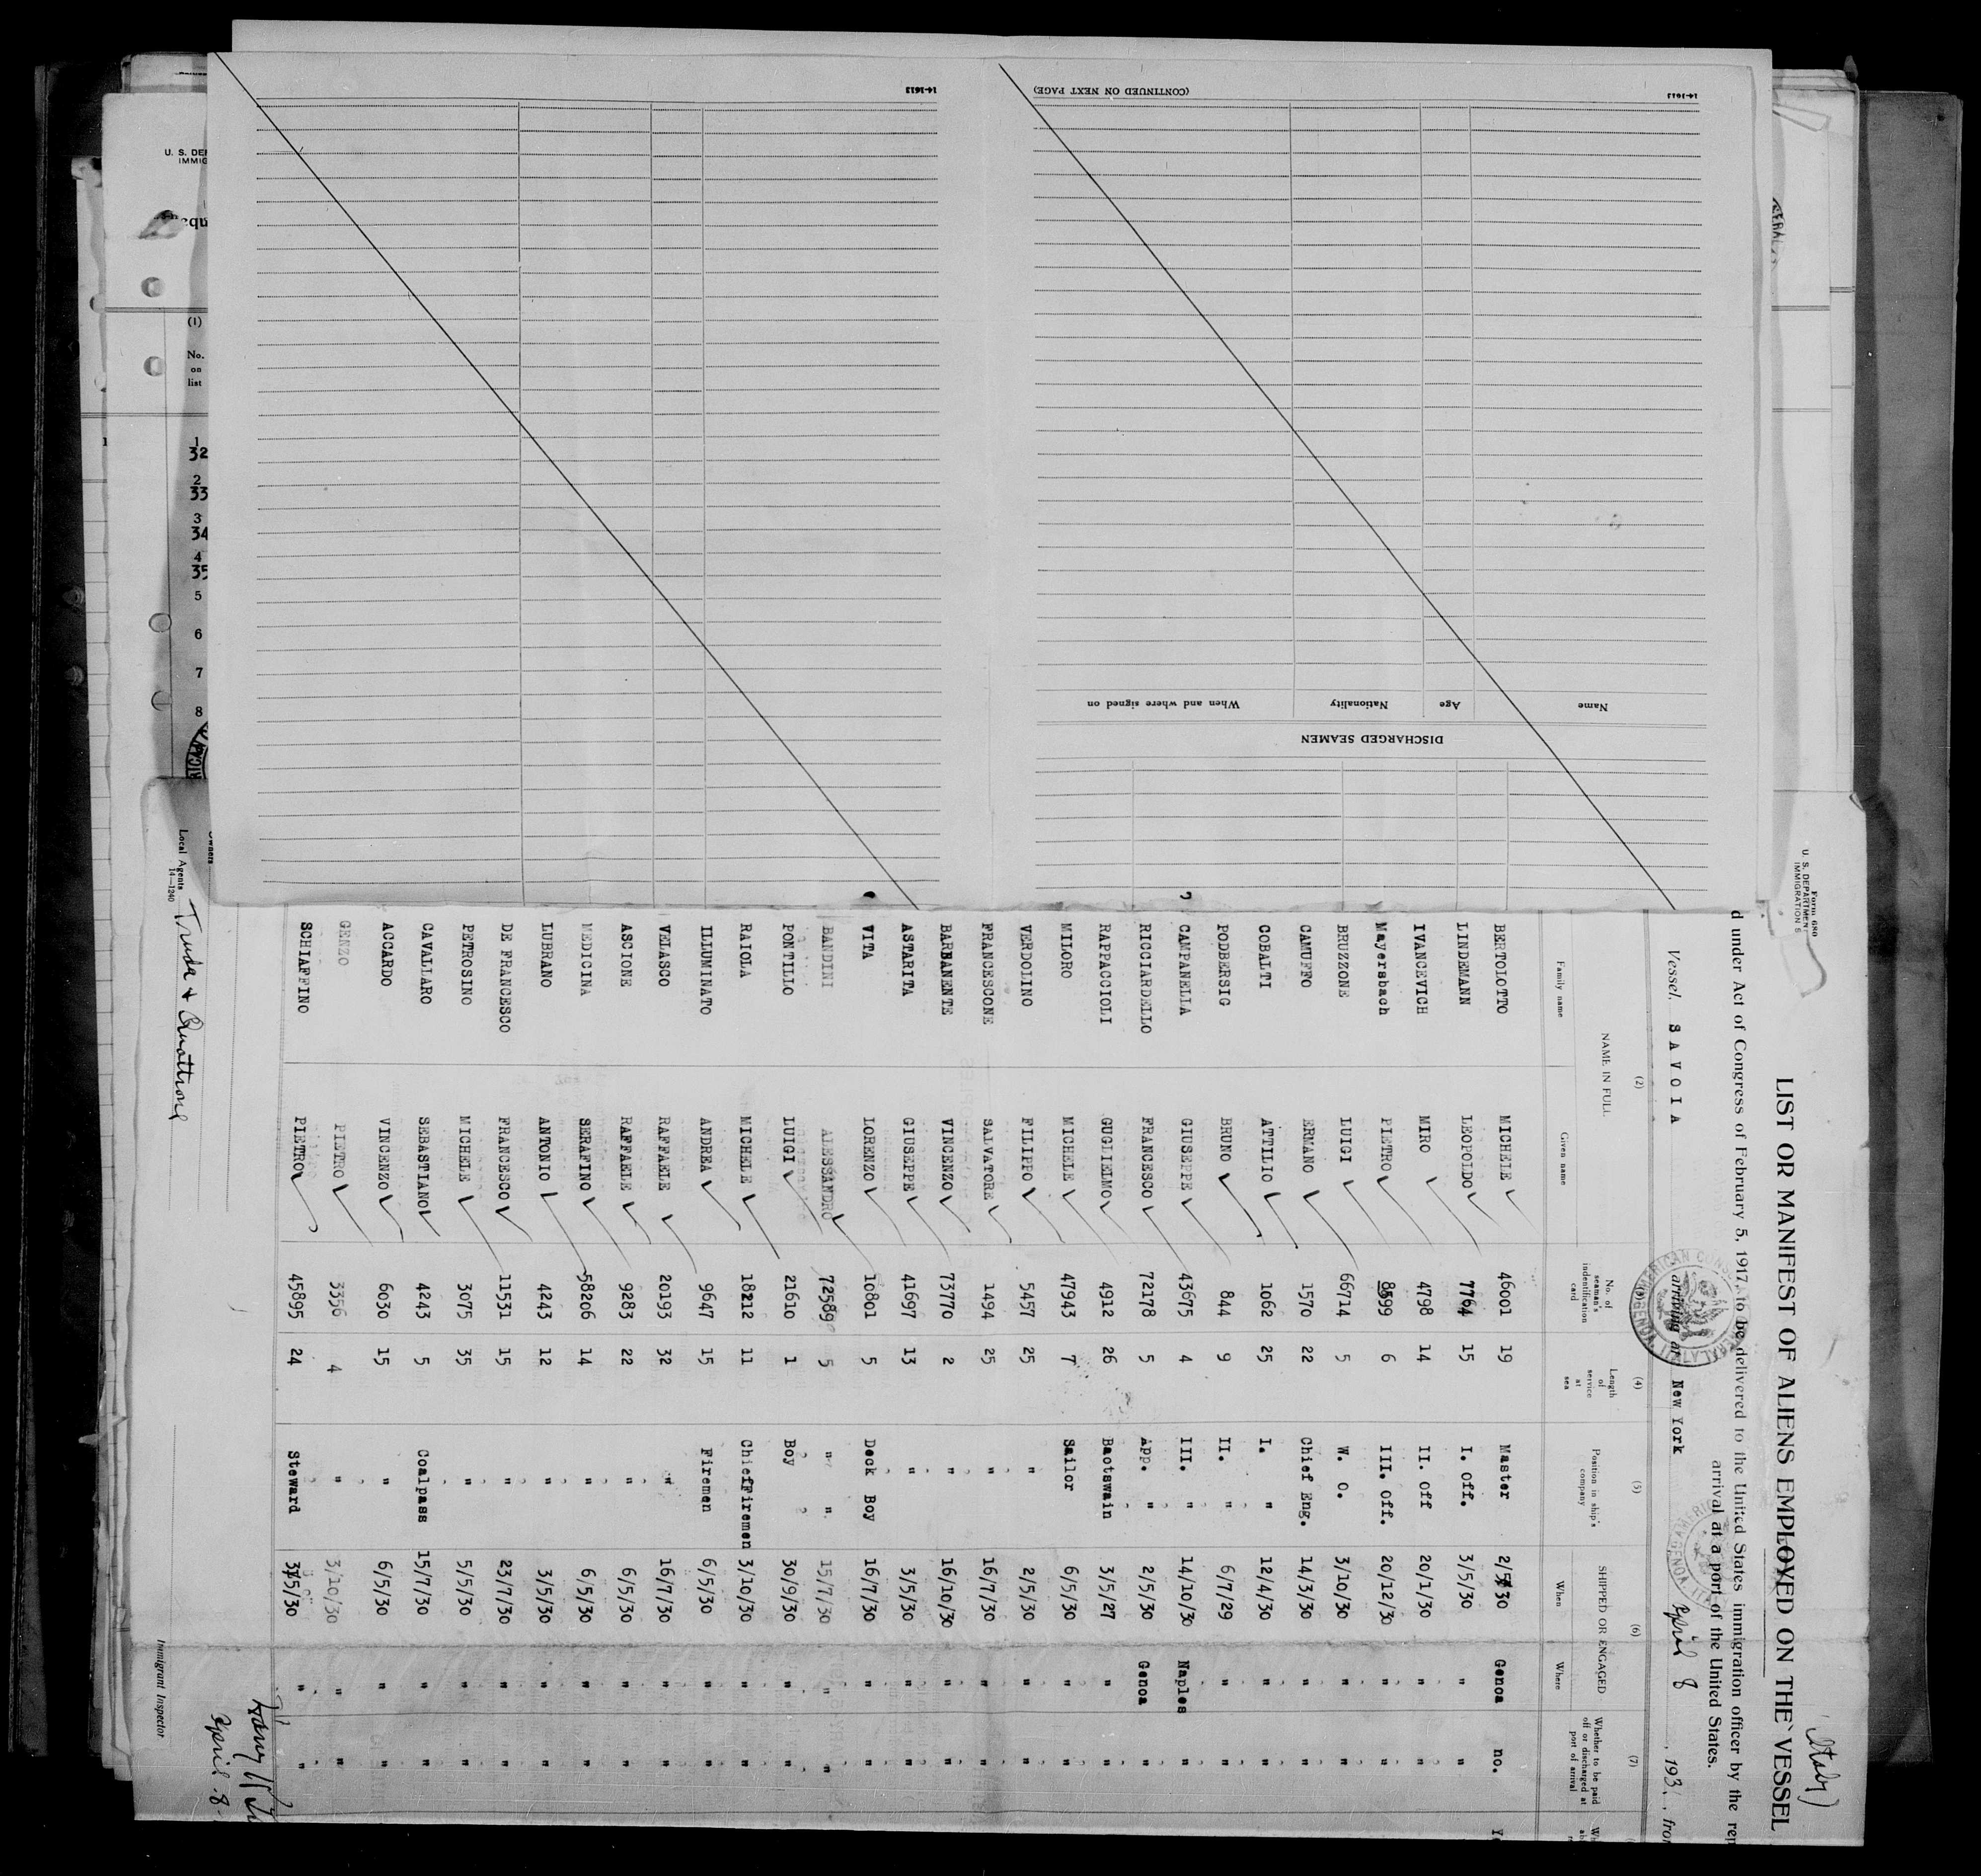 (Italy)
Form 680
U. S. DEPARTMENT
IMMIGRATION S
LIST OR MANIFEST OF ALIENS EMPLOYED ON THE VESSEL
d under Act of Congress of February 5, 1917, to be delivered to the United States immigration officer by the rep
arrival at a port of the United States.
Vessel SAVOIA arriving at New York. April 8, 1931, from
(2) (4) (5) (6) (7)
NAME IN FULL
Family name Given name
No. of seaman's indentification card
Length of service at sea
Position in ship's company
SHIPPED OR ENGAGED
When Where
Whether to be paid off or discharged at port of arrival
BERTOLOTTO MICHELE 46001 19 Master 2/5/30 Genoa no.
LINDEMANN LEOPOLDO 7764 15 I. Off. 3/5/30 " "
IVANCEVICH MIRO 4798 14 II. Off 20/1/30 " "
Mayersbach PIETRO 8599 6 III. Off. 20/12/30 " "
BRUZZONE LUIGI 66714 5 W. O. 3/10/30 " "
CAMUFFO ERMANO 1570 22 Chief Eng. 14/3/30 " "
COBALTI ATTILIO 1062 25 I. " 12/4/30 " "
PODBERSIG BRUNO 844 9 II. " 6/7/29 " "
CAMPANELLA GIUSEPPE 43675 4 III. " 14/10/30 Naples "
RICCIARDELLO FRANCESCO 72178 5 App. " 2/5/30 Genoa "
RAPPACCIOLI GUGLIELMO 4912 26 Baotswain 3/5/27 " "
MILORO MICHELE 47943 7 Sailor 6/5/30 " "
VERDOLINO FILIPPO 5457 25 " 2/5/30 " "
FRANCESCONE SALVATORE 1494 25 " 16/7/30 " "
BARBANENTE VINCENZO 73770 2 " 16/10/30 " "
ASTARITA GIUSEPPE 41697 13 " 3/5/30 " "
VITA LORENZO 10801 5 Deck Boy 16/7/30 " "
BANDINI ALESSANDRO 72589 5 " " 15/7/30 " "
PONTILLO LUIGI 21610 1 Boy 30/9/30 " "
RAIOLA MICHELE 18212 11 ChiefFiremen 3/10/30 " "
ILLUMINATO ANDREA 9647 15 Firemen 6/5/30 " "
VELASCO RAFFAELE 20193 32 " 16/7/30 " "
ASCIONE RAFFAELE 9283 22 " 6/5/30 " "
MEDICINA SERAFINO 58206 14 " 6/5/30 " "
LUBRANO ANTONIO 4243 12 " 3/5/30 " "
DE FRANCESCO FRANCESCO 11531 15 " 23/7/30 " "
PETROSINO MICHELE 3075 35 " 5/5/30 " "
CAVALLARO SEBASTIANO 4243 5 Coalpass 15/7/30 " "
ACCARDO VINCENZO 6030 15 " 6/5/30 " "
GENZO PIETRO 3356 4 " 3/10/30 " "
SCHIAFFINO PIETRO 45895 24 Steward 3/5/30 " "
Owners
Local Agents
14-1240
Truda & Quattrone
April 8
Immigrant Inspector
DISCHARGED SEAMEN
Name Age Nationality When and where signed on
(CONTINUED ON NEXT PAGE)
14-1613
14-1613
U. S. DE
IMMIG
(1)
No.
on
list
1
32
2
33
3
34
4
35
5
6
7
8